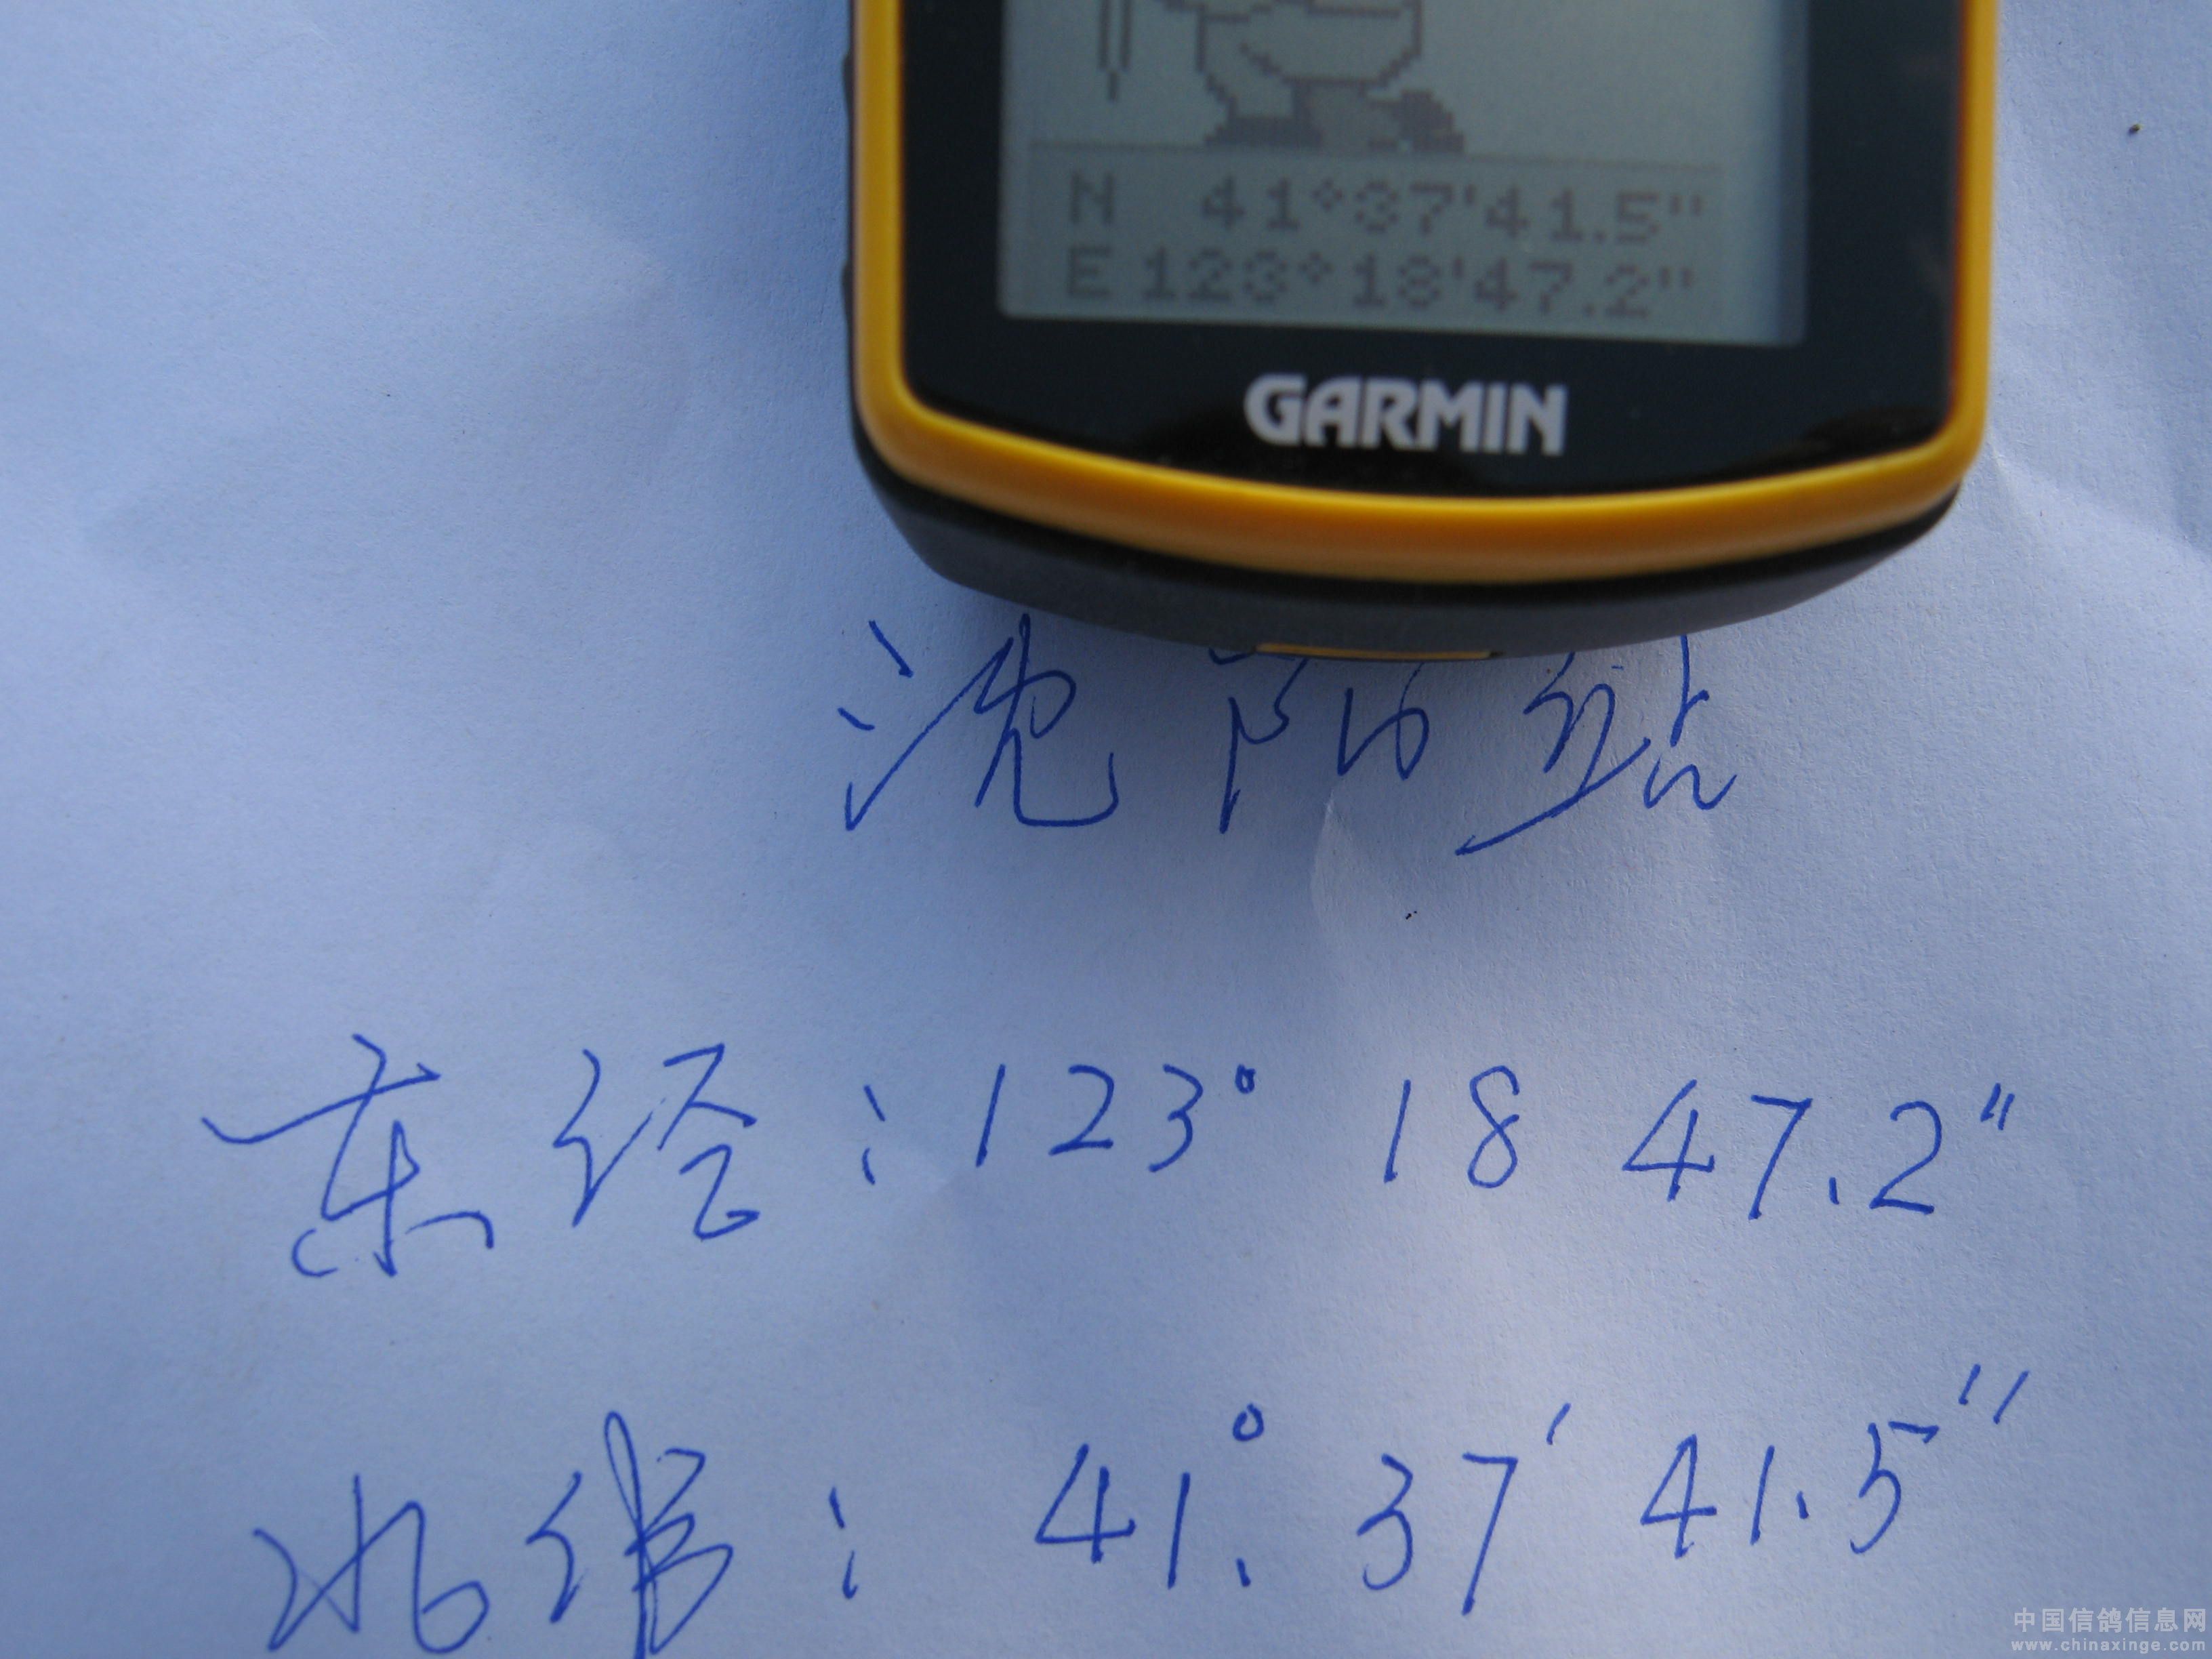 N 41°37'41.5"
E 123°18'47.2"
GARMIN
沈阳站
东经:123° 18 47.2"
北纬:41.° 37' 41.5"
中国信鸽信息网
www.chinaxinge.com